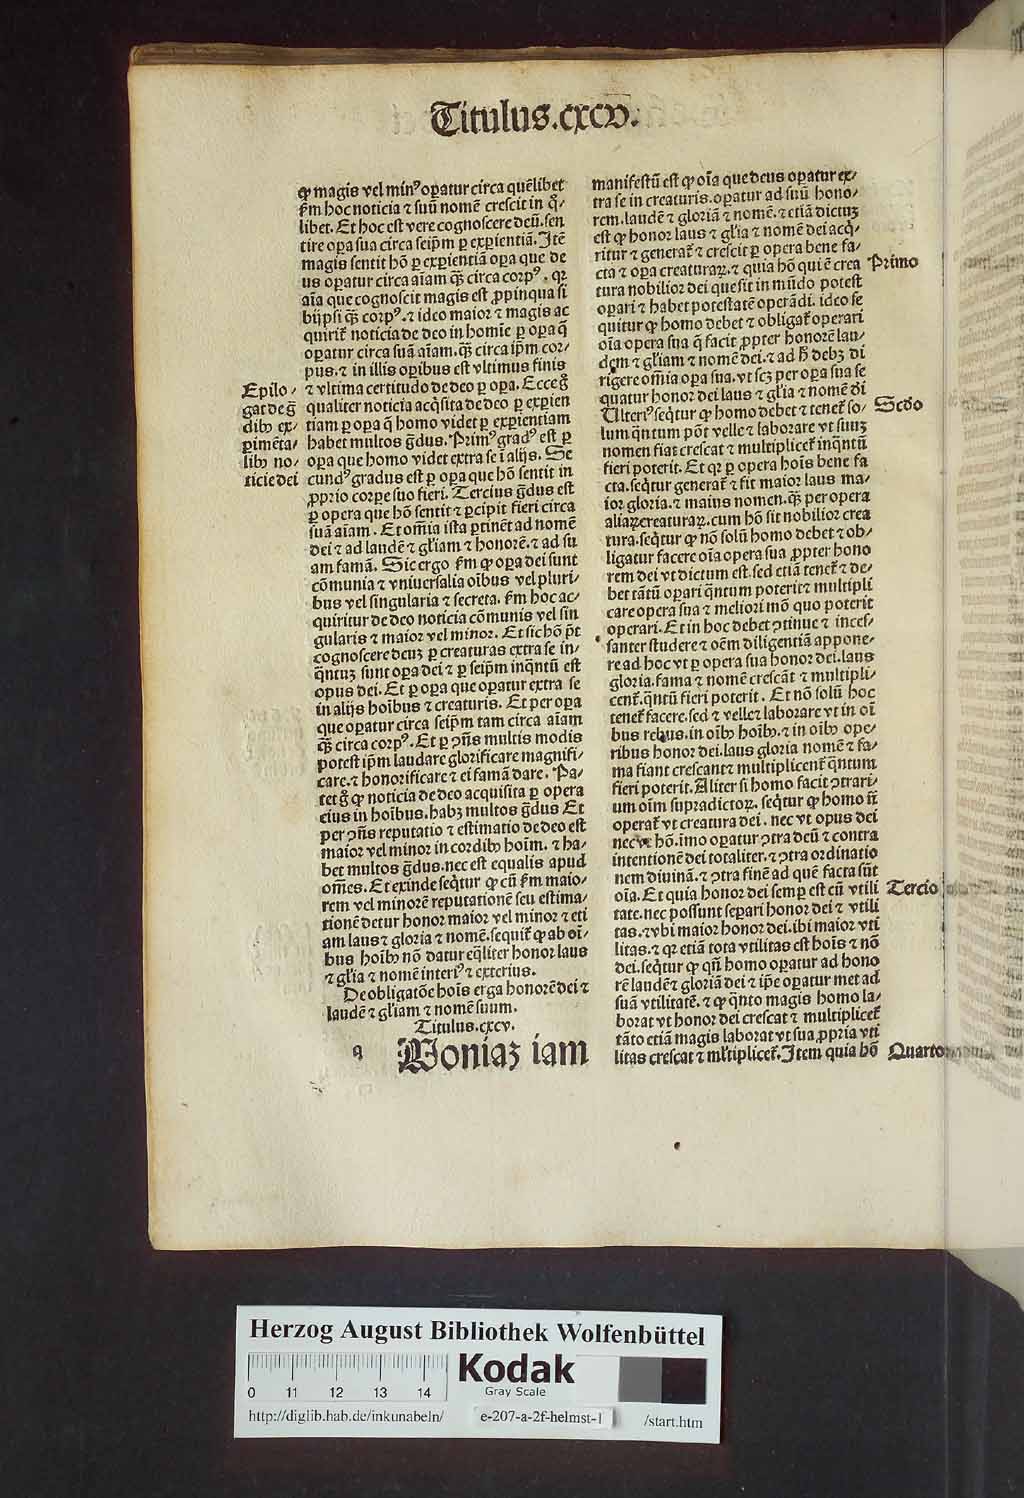 Titulus.cxcv.
ꝙ magis vel minꝰ oꝑatur circa quēlibet
ẜm hoc noticia ⁊ suū nomē crescit in q̄-
libet. Et hoc est vere cognoscere deū. sen
tire oꝑa sua circa seip̄m ꝑ exꝑientiā. Itē
magis sentit hō ꝑ exꝑientiā oꝑa que de
us oꝑatur circa aīam q̄ꝫ circa corpꝰ. qꝛ
aīa que cognoscit magis est ꝓpinqua si
bijpsi q̄ꝫ corpꝰ. ⁊ ideo maior ⁊ magis ac
quirit̄ noticia de deo in homīe ꝑ oꝑa q̄
oꝑatur circa suā aīam. q̄ꝫ circa ip̄m cor-
pus. ⁊ in illis oꝑibus est vltimus finis
⁊ vltima certitudo de deo ꝑ oꝑa. Ecce g̊
qualiter noticia acq̄sita de deo ꝑ exꝑien
tiam ꝑ oꝑa q̄ homo videt ꝑ exꝑientiam
habet multos ḡdus. Primꝰ gradꝰ est ꝑ
oꝑa que homo videt extra se ī alijs. Se
cundꝰ gradus est ꝑ oꝑa que hō sentit in
ꝓprio corꝑe suo fieri. Tercius ḡdus est
ꝑ opera que hō sentit ⁊ ꝑcipit fieri circa
suā aīam. Et om̄ia ista ꝑtinēt ad nomē
dei ⁊ ad laudē ⁊ gl̄iam ⁊ honorē. ⁊ ad su
am famā. Sic ergo ẜm ꝙ oꝑa dei sunt
cōmunia ⁊ vniuersalia oībus vel pluri-
bus vel singularia ⁊ secreta. ẜm hoc ac-
quiritur de deo noticia cōmunis vel sin
gularis ⁊ maior vel minor. Et sic hō p̄t
cognoscere deuꝫ ꝑ creaturas extra se in-
q̄ntuꝫ sunt oꝑa dei ⁊ ꝑ seip̄m inq̄ntū est
opus dei. Et ꝑ oꝑa que oꝑatur extra se
in alijs hoībus ⁊ creaturis. Et per oꝑa
que oꝑatur circa seip̄m tam circa aīam
q̄ꝫ circa corpꝰ. Et ꝑ ꝯn̄s multis modis
potest ip̄m laudare glorificare magnifi-
care. ⁊ honorificare ⁊ ei famā dare. Pa-
tet g̊ ꝙ noticia de deo acquisita ꝑ opera
eius in hoībus. habꝫ multos ḡdus Et
per ꝯn̄s reputatio ⁊ estimatio de deo est
maior vel minor in cordibꝰ hoīm. ⁊ ha-
bet multos ḡdus. nec est equalis apud
om̄es. Et exinde seq̄tur ꝙ cū ẜm maio-
rem vel minorē reputationē seu estima-
tionē detur honor maior vel minor ⁊ eti
am laus ⁊ gloria ⁊ nomē. sequit̄ ꝙ ab oī-
bus hoībꝰ nō datur eq̄liter honor laus
⁊ gl̄ia ⁊ nomē interiꝰ ⁊ exterius.
De obligatōe hoīs erga honorē dei ⁊
laudē ⁊ gl̄iam ⁊ nomē suum.
Titulus.cxcv.
q
Qoniaꝫ iam
Epilo-
gat de ḡ
dibꝰ ex-
perimēta-
libꝰ no-
ticie dei
manifestū est ꝙ oīa que deus oꝑatur ex-
tra se in creaturis. oꝑatur ad suū hono-
rem. laudē ⁊ gloriā ⁊ nomē. ⁊ etiā dictuꝫ
est ꝙ honor laus ⁊ gl̄ia ⁊ nomē dei acq̄-
ritur ⁊ generat̄ ⁊ crescit ꝑ opera bene fa-
cta ⁊ oꝑa creaturaꝝ. ⁊ quia hō qui ē crea
tura nobilior dei que sit in mūdo potest
oꝑari ⁊ habet potestatē operādi. ideo se
quitur ꝙ homo debet ⁊ obligat̄ operari
oīa opera sua q̄ facit ꝓpter honorē lau-
dem ⁊ gl̄iam ⁊ nomē dei. ⁊ ad h̄ debꝫ di
rigere om̄ia oꝑa sua. vt scꝫ per oꝑa sua se
quatur honor dei laus ⁊ gl̄ia ⁊ nomē dei
Ulteriꝰ seq̄tur ꝙ homo debet ⁊ tenet̄ so-
lum q̄ntum pōt velle ⁊ laborare vt suuꝫ
nomen fiat crescat ⁊ multiplicet̄ inq̄ntū
fieri poterit. Et qꝛ ꝑ opera hoīs bene fa
cta. seq̄tur generat̄ ⁊ fit maior laus ma-
ior gloria. ⁊ maius nomen. q̄ꝫ per opera
aliaꝝ creaturaꝝ. cum hō sit nobilior crea
tura. seq̄tur ꝙ nō solū homo debet ⁊ ob-
ligatur facere oīa opera sua ꝓpter hono
rem dei vt dictum est. sed etiā tenet̄ ⁊ de-
bet tātū oꝑari q̄ntum poterit ⁊ multipli
care opera sua ⁊ meliori mō quo poterit
operari. Et in hoc debet ꝯtinue ⁊ inces-
santer studere ⁊ oēm diligentiā appone-
re ad hoc vt ꝑ opera sua honor dei. laus
gloria. fama ⁊ nomē crescāt ⁊ multipli-
cent̄. q̄ntū fieri poterit. Et nō solū hoc
tenet̄ facere. sed ⁊ velle ⁊ laborare vt in oī
bus rebus. in oībꝰ hoībꝰ. ⁊ in oībꝰ ope-
ribus honor dei. laus gloria nomē ⁊ fa-
ma fiant crescant ⁊ multiplicent̄ q̄ntum
fieri poterit. Aliter si homo facit ꝯtrari-
um oīm supradictoꝝ. seq̄tur ꝙ homo n̄
operat̄ vt creatura dei. nec vt opus dei
nec vt hō. īmo oꝑatur ꝯtra deū ⁊ contra
intentionē dei totaliter. ⁊ ꝯtra ordinatio
nem diuinā. ⁊ ꝯtra finē ad quē facta sūt
oīa. Et quia honor dei semꝑ est cū vtili
tate. nec possunt seꝑari honor dei ⁊ vtili
tas. ⁊ vbi maior honor dei. ibi maior vti
litas. ⁊ qꝛ etiā tota vtilitas est hoīs ⁊ nō
dei. seq̄tur ꝙ qn̄ homo oꝑatur ad hono
rē laudē ⁊ gloriā dei ⁊ ip̄e oꝑatur met ad
suā vtilitatē. ⁊ ꝙ q̄nto magis homo la-
borat vt honor dei crescat ⁊ multiplicet̄
tāto etiā magis laborat vt sua ꝓpria vti
litas crescat ⁊ ml̄tiplicet̄. Item quia hō
Primo
Sc̄do
Tercio
Quarto
Herzog August Bibliothek Wolfenbüttel
0 11 12 13 14
Kodak
Gray Scale
http://diglib.hab.de/inkunabeln/ e-207-a-2f-helmst-1 /start.htm